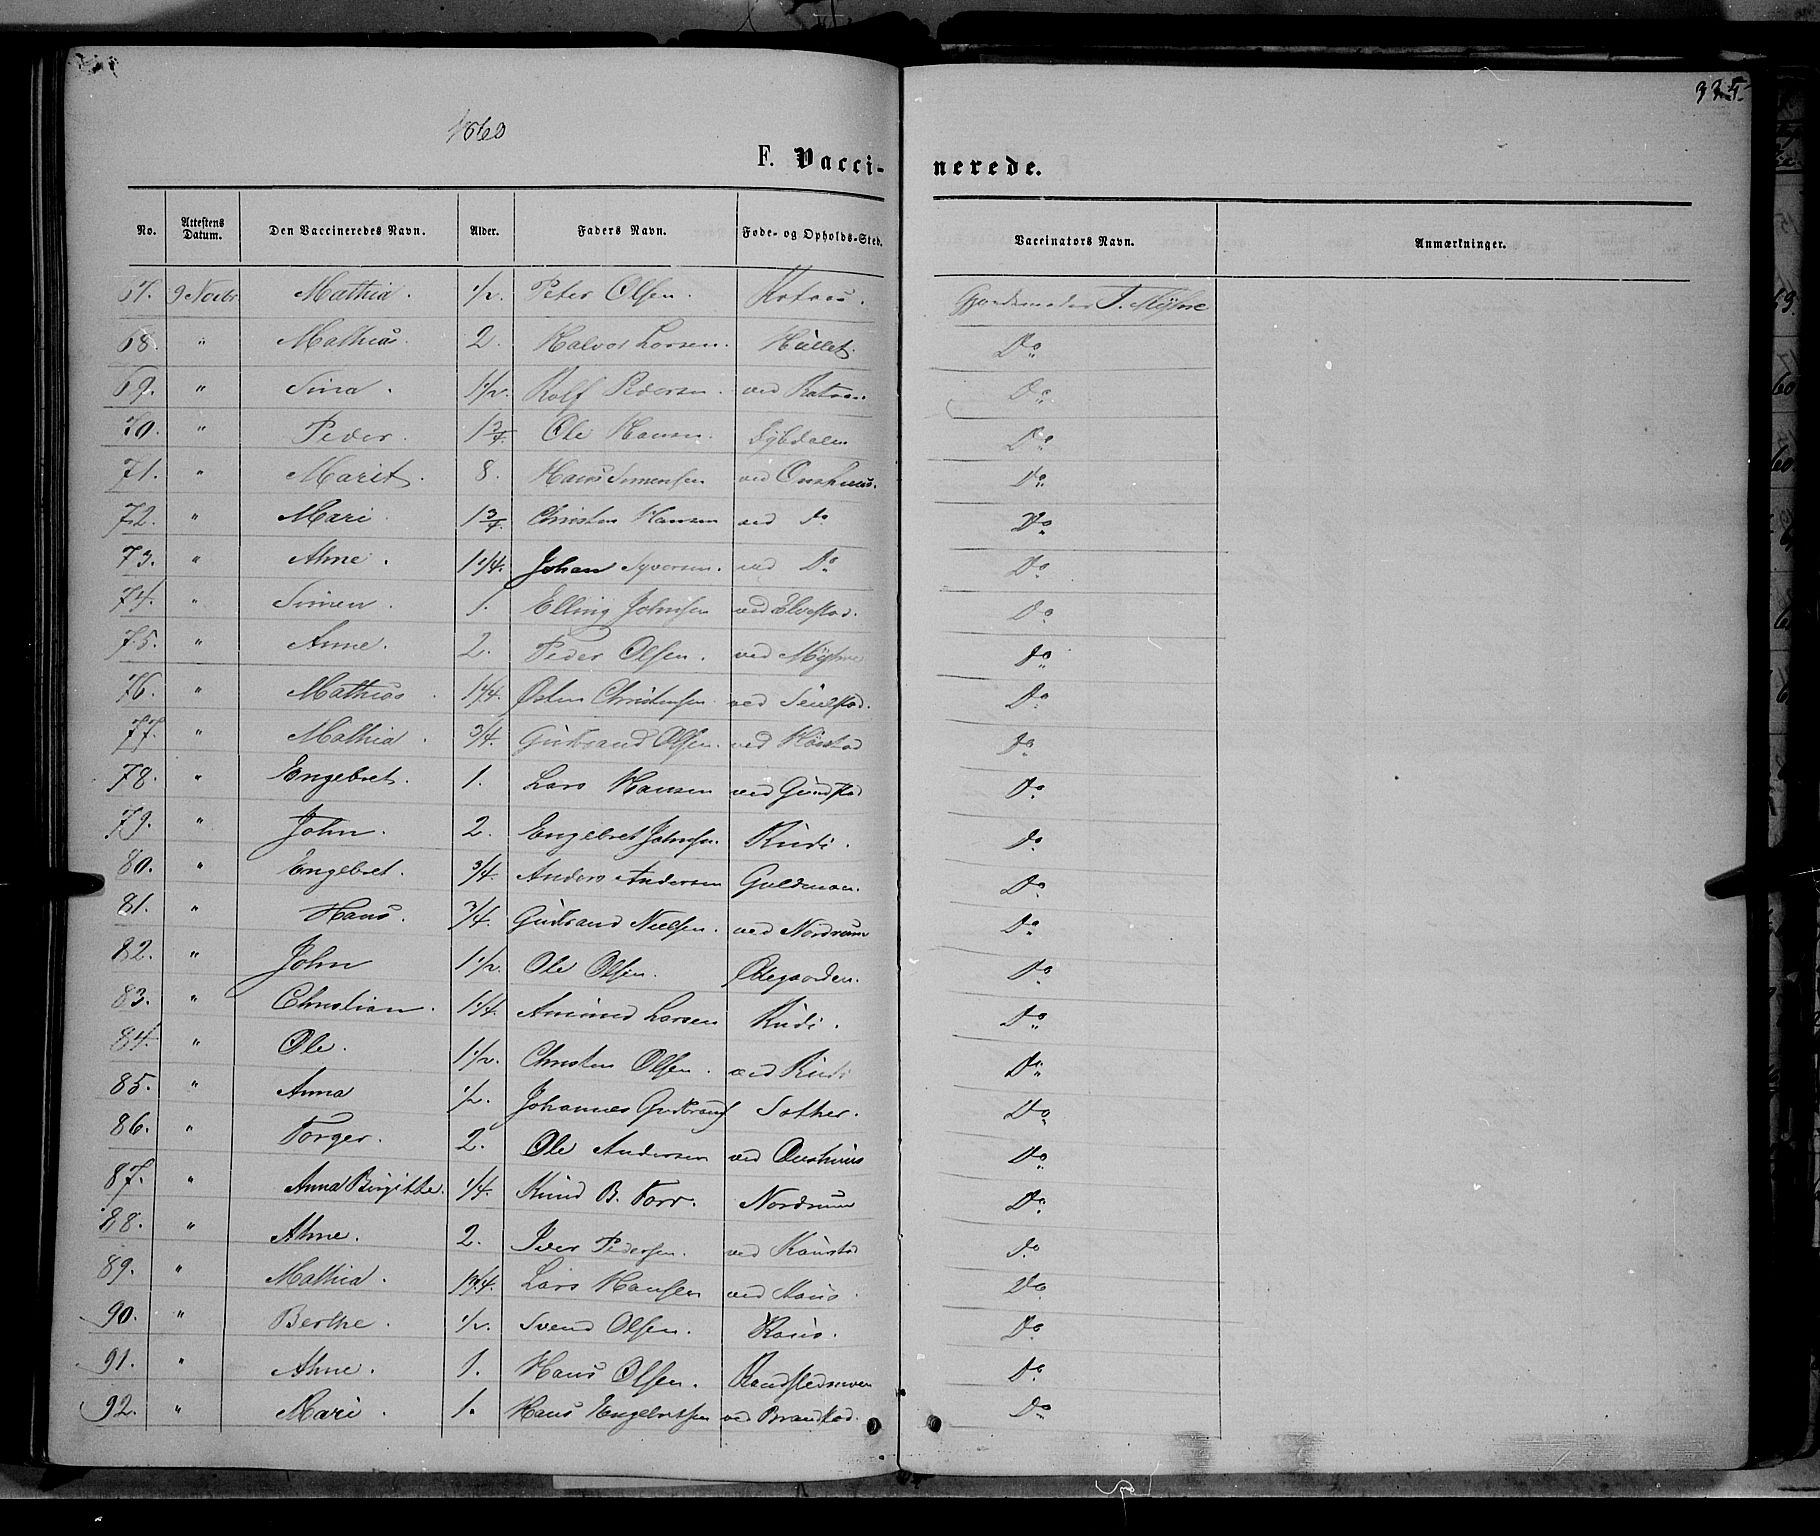 335.
1860
F. Vacci- nerede.
No. Attestens Datum. Den Vaccineredes Navn. Alder. Faders Navn. Føde- og Opholds-Sted. Vaccinators Navn. Anmærkninger.
67. 9 Novbr Mathia. 1/2. Peter Olsen. J. Myhre
68. " Mathias. 2. Halvor Larsen. Hullet. Do
69. " Sina. 1 1/2. Rolf Pedersen. ved Do
70. " Peder. 1 3/4. Ole Hansen. Dybdalen Do
71. " Marit. 8. Hans Simensen ved Onshuus. Do
72. " Mari. 1 3/4. Christen Hansen ved Do Do
73. " Ahne. 1 1/4. Johan Syversen. ved Do Do
74. " Simen. 1. Elling Johnsen ved Elvestad. Do
75. " Anne. 2. Peder Olsen. ved Myhre Do
76. " Mathias. 1 1/4. Østen Christensen. ved Do
77. " Mathia. 3/4. Gudbrand Olsen. ved Do
78. " Engebret. 1. Lars Hansen ved Gundstad Do
79. " John. 2. Engebret Johnsen. Rudi. Do
80. " Engebret. 3/4. Anders Andersen Guldmoen. Do
81. " Hans. 3/4. Gudbrand Nielsen. ved Nordrum Do
82. " John 1 1/2. Ole Olsen. Ødegaarden. Do
83. " Christian. 1 1/4. Amund Larsen Rudi. Do
84. " Ole. 1 1/2. Christen Olsen. ved Rudi Do
85. " Anna 1/2. Johannes Gudbrands Sother. Do
86. " Torger. 2. Ole Andersen ved Onshuus Do
87. " Anna Birgitte. 1/4. Knud B. Torr. Nordrum Do
88. " Ahne. 2. Iver Pedersen. ved Do
89. " Mathia. 1 3/4. Lars Hansen ved Do
90. " Berthe. 1/2. Svend Olsen. Do
91. " Ahne. 1. Hans Olsen. Do
92. " Mari. 1. Hans Engebretsen ved Brandstad. Do